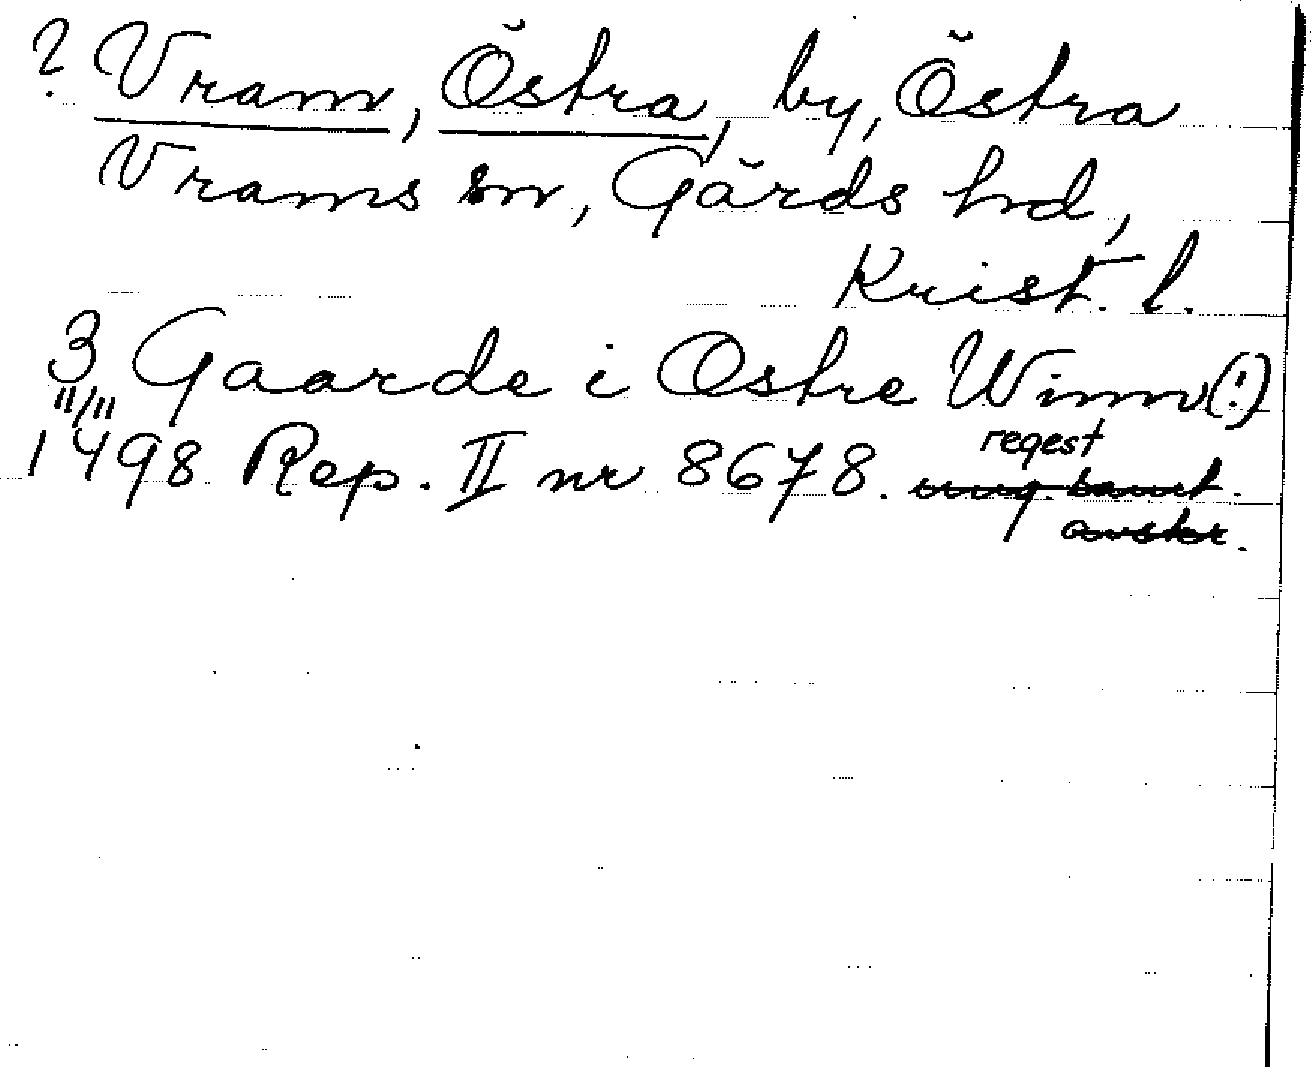 ? Vram, Östra, by, Östra
Vrams sn, Gärds hd,
Krist. l.
3 Gaarde i Ostre Wimv(!)
11/11 1498 Rep. II nr 8678. regest
avskr.